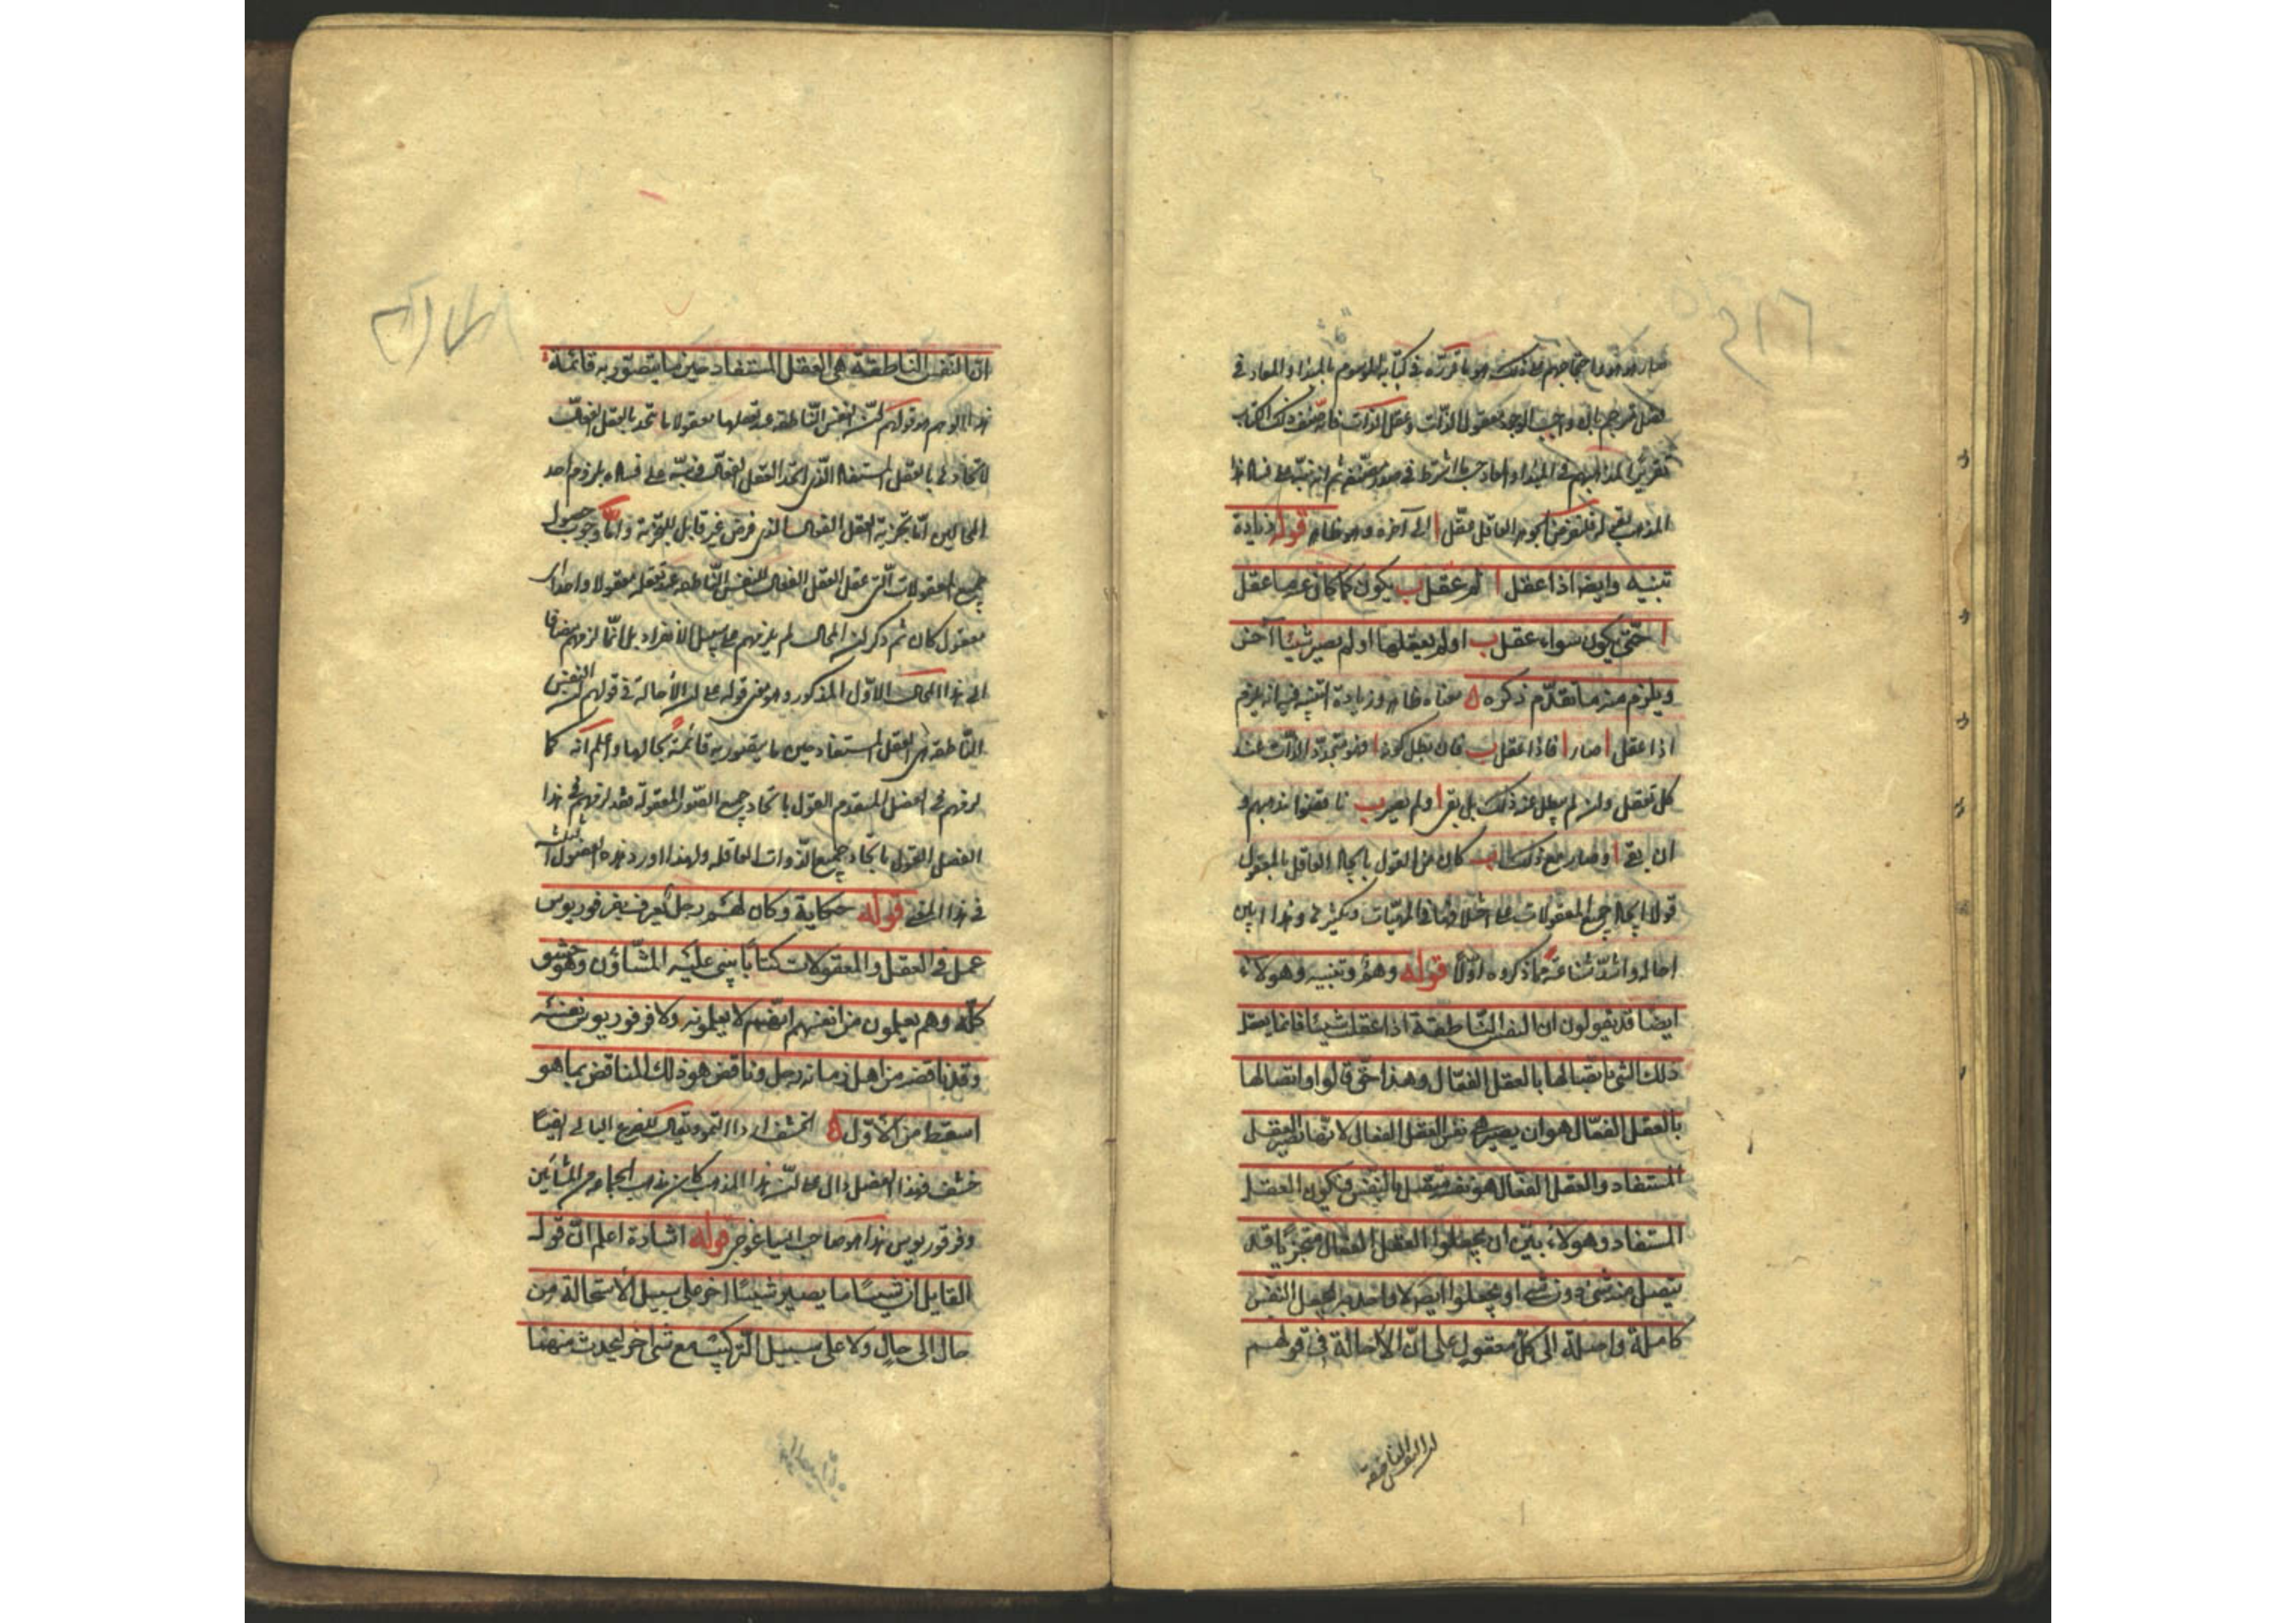 صار هو هو واحتجاجهم على ذلك هو ما قرره في كتابه الموسوم بالمبدأ والمعاد في
فصل مترجم بان واجب الوجود معقول الذات وعقل الذات فانه صنف ذلك الكتاب
تقريرا لمذاهبهم في المبدا والمعاد حسب ما اشترط في صدر تصنيفه ثم انه نبه على فساد هذا
المذهب بقوله فلنفرض الجوهر العاقل عقل ا الى آخره وهو ظاهر قوله زيادة
تنبيه وايضا اذا عقل ا ثم عقل ب يكون كما كان عندما عقل
ا حتى يكون سواء عقل ب او لم يعقلها او لم يصير شيئا آخر
ويلزم منه ما تقدم ذكره ه معناه ظاهر وزيادة التنبيه فيه انه يلزم
اذا عقل ا صار ا فاذا عقل ب فان بطل كونه ا فهو متجدد الذات عند
كل تعقل وان لم يبطل عند ذلك بل بقى ا ولم يصير ب ناقضوا مذهبهم و
ان بقى ا وصار مع ذلك ب كان من القول باتحاد العاقل بالمعقول
قولا باتحاد جميع المعقولات على اختلافها في الماهيات وتكثرها وهذا ابين
احالة واشد شناعة مما ذكروه اولا قوله وهم وتنبيه وهولاء
ايضا قد يقولون ان النفس الناطقة اذا عقلت شيئا فانما يعقل
ذلك الشئ باتصالها بالعقل الفعال وهذا حق قالوا واتصالها
بالعقل الفعال هو ان يصير هي نفس العقل الفعال لانها تصير العقل
المستفاد والعقل الفعال هو نفسه يتصل بالنفس فيكون العقل
المستفاد وهولاء بين ان يجعلوا العقل الفعال متجزيا قد
يتصل منه شئ دون شئ او يجعلوا اتصالا واحدا به يجعل النفس
كاملة واصلة الى كل معقول على ان الاحالة في قولهم
ان النفس الناطقة
ان النفس الناطقة هي العقل المستفاد حين ما يتصور به قائمة
هذا الوهم هو قولهم ان النفس الناطقة عند تعقلها معقولا ما تتحد بالعقل الفعال
لاتحادها بالعقل المستفاد الذي اتحد العقل الفعال فنبه على فساده بلزوم احد
المحالين اما تجزية العقل الفعال الذي فرض غير قابل للتجزية واما وجوب حصول
جميع المعقولات التي عقل العقل الفعال للنفس الناطقة عند تعقله معقولا واحدا اي
معقول كان ثم ذكر ان المحال لم يلزمهم على سبيل الانفراد بل انما لزمهم مضافا
الى هذا المحال الاول المذكور وهو معنى قوله على ان الاحالة في قولهم ان النفس
الناطقة هي العقل المستفاد حين ما يتصور به قائمة بحالها واعلم انه كما
لزمهم في الفصل المتقدم القول باتحاد جميع الصور المعقولة فقد لزمهم في هذا
الفصل القول باتحاد جميع الذوات العاقلة ولهذا اورد هذه الفصول الثلثة
في هذا المعنى قوله حكاية وكان لهم رجل يعرف بفرفوريوس
عمل في العقل والمعقولات كتابا يثني عليه المشاؤن وهو حشف
كله وهم يعلمون من انفسهم انهم لا يعلمونه ولا فرفوريوس نفسه
وقد ناقضه من اهل زمانه رجل وناقض هو ذلك المناقض بما هو
اسقط من الاول ه الحشف اردا التمر ويقال للضرع البالي ايضا
حشف فهذا الفصل دال على ان هذا المذهب كان مذهب الجماعة من المشائين
وفرفوريوس هذا هو صاحب ايساغوجى قوله اشارة اعلم ان قول
القايل ان شيئا ما يصير شيئا اخر على سبيل الاستحالة من
حال الى حال ولا على سبيل التركيب مع شئ اخر ليحدث منهما